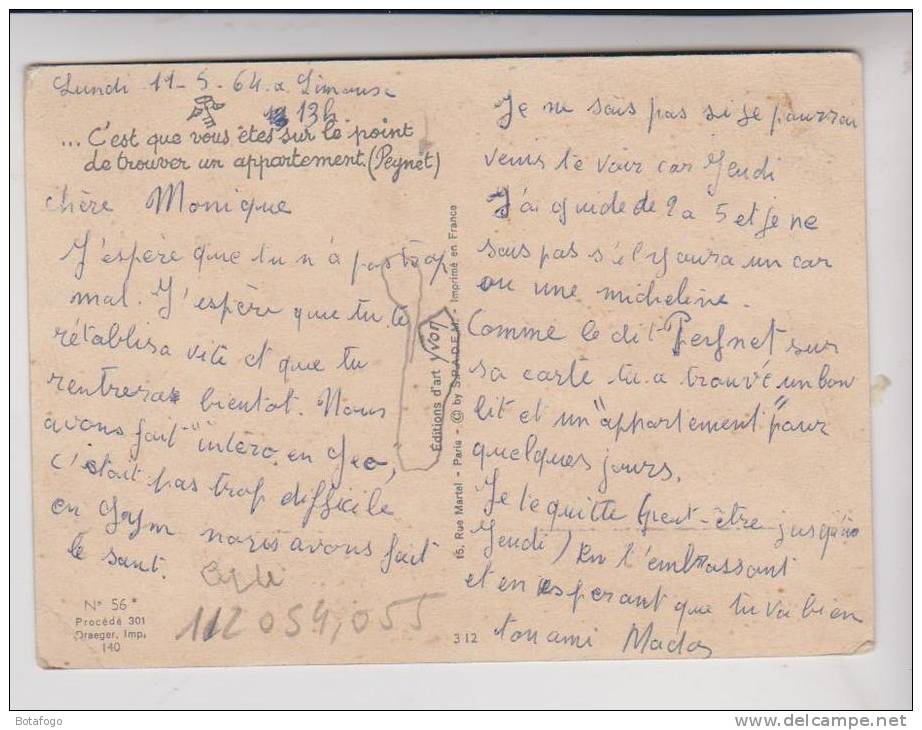 Lundi 11-5-64 a Limouse
13h
... C'est que vous êtes sur le point
de trouver un appartement. (Peynet)
chère Monique
J'espère que tu n'a pas trop
mal. J'espère que tu te
rétablisa vite et que tu
rentreras bientot. Nous
avons fait "intero" en Geo,
c'était pas trop difficile
en Gym nous avons fait
le saut.
112 054,055
N° 56
Procédé 301
Draeger, Imp.
140
Éditions d'art yvon
15, Rue Martel - Paris - © by S.P.A.D.E.M. - Imprimé en France
312
Je ne sais pas si je pourrai
venir te voir car Jeudi
J'ai guide de 2 a 5 et je ne
sais pas s'il y aura un car
ou une micheline.
Comme le dit Peynet sur
sa carte tu a trouvé un bon
lit et un "appartement" pour
quelques jours.
Je te quitte (peut-être jusqu'à
Jeudi) En t'embrassant
et en esperant que tu va bien
ton ami Mado
Botafogo
delcampe.net